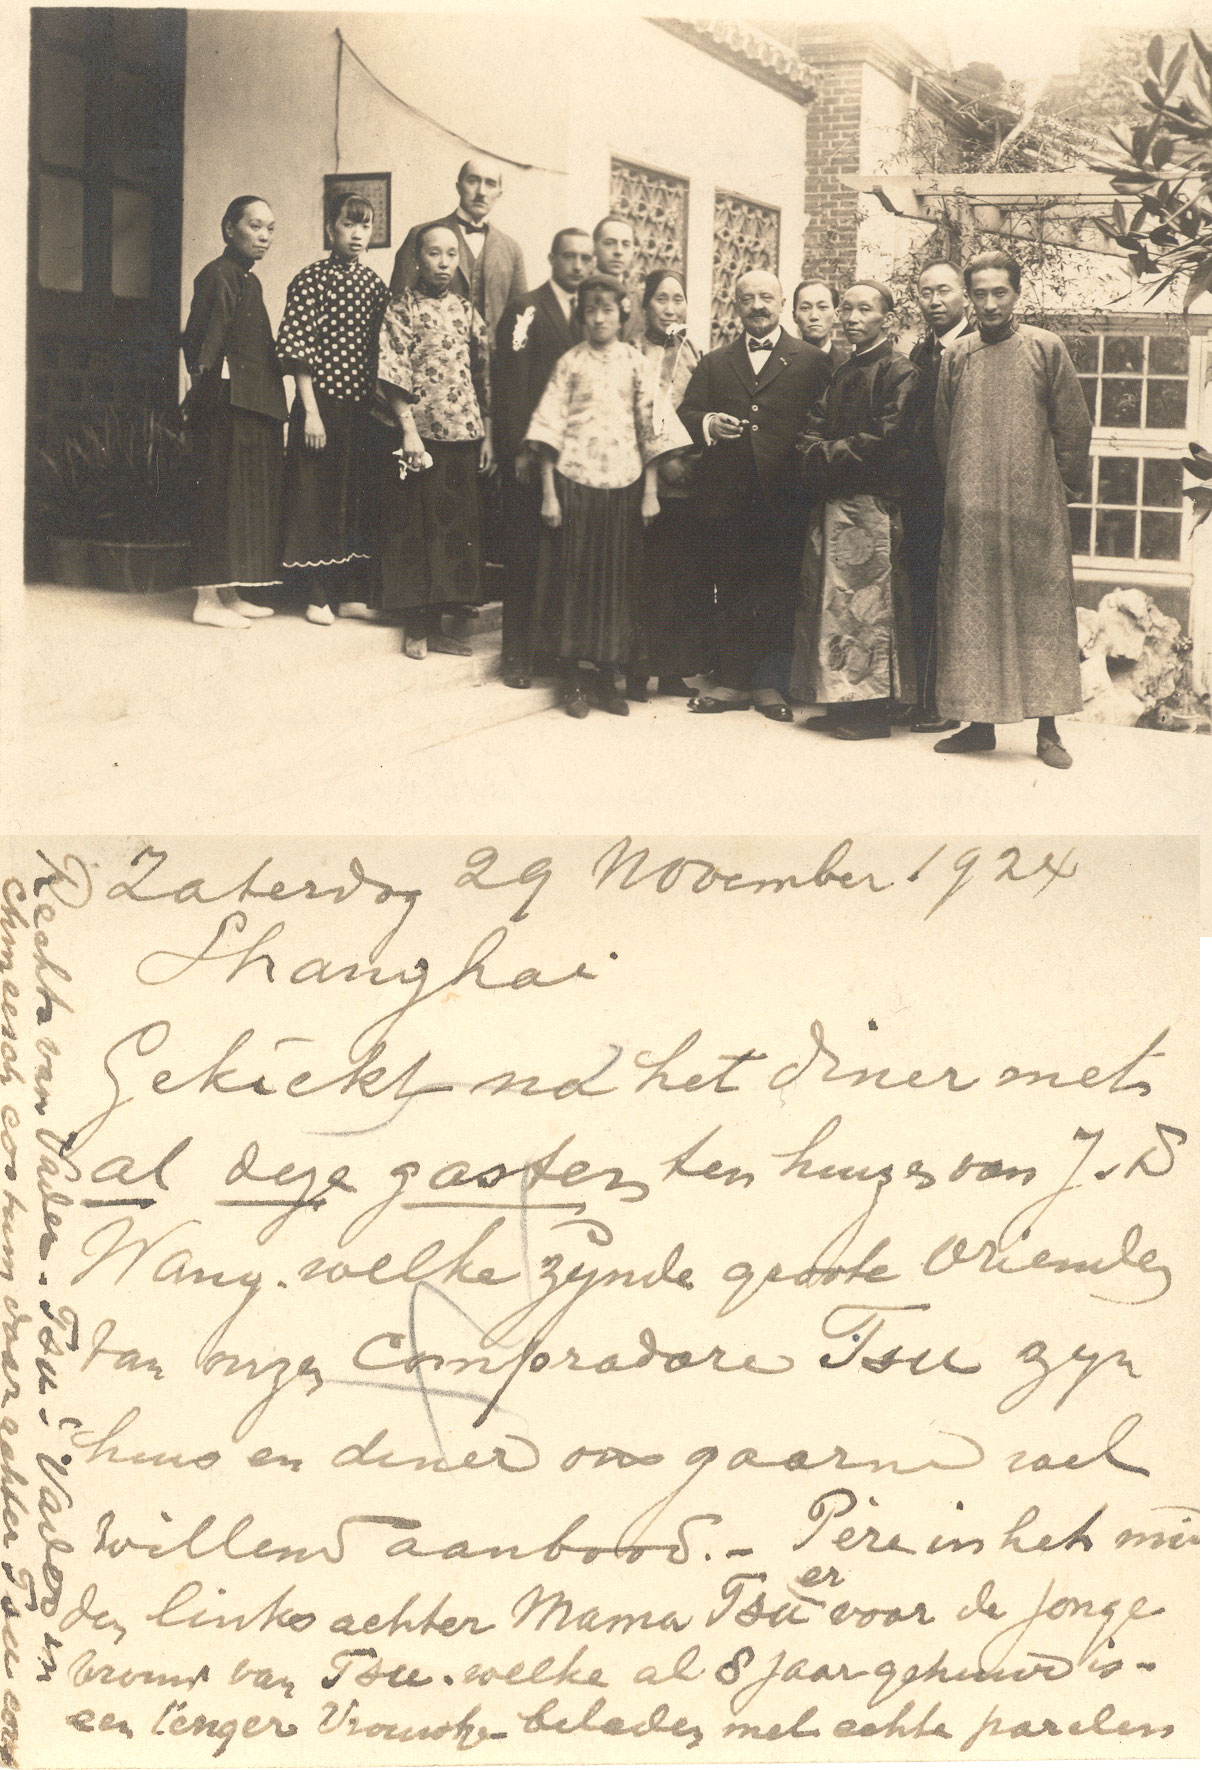 Zaterdag 29 November 1924
Shanghai
Gekiekt na het diner met
al deze gasten ten huize van J. D
Wang. welke zynde groote vrienden
van onzen Compradore Tsu zyn
huis en diner ons gaarne wel
willend aanbood. - Père in het mid
den links achter Mama Tsu er voor de jonge
vrouw van Tsu. welke al 8 jaar gehuwd is -
een tenger Vrouwtje beladen met echte parelen
Rechts van Vader. Tsu's Vader in
chineesch costum daar achter Tsu